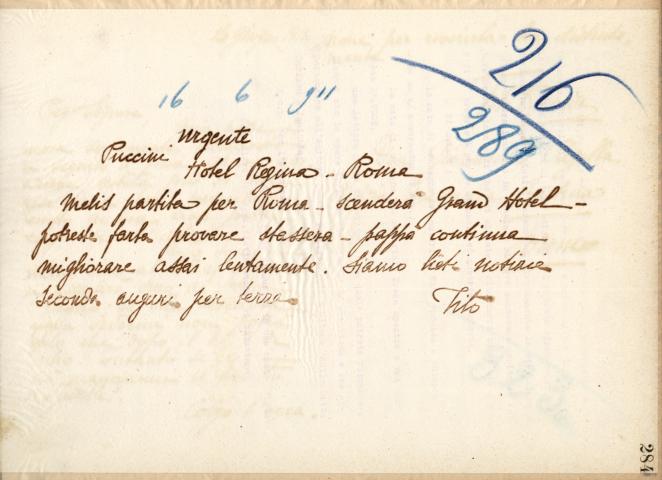 216
289
16 6 911
urgente
Puccini Hotel Regina - Roma
Melis partita per Roma - scenderà Grand Hotel -
potreste farla provare stassera - pappà continua
migliorare assai lentamente. Siamo lieti notizie
seconda auguri per terza
Tito
284